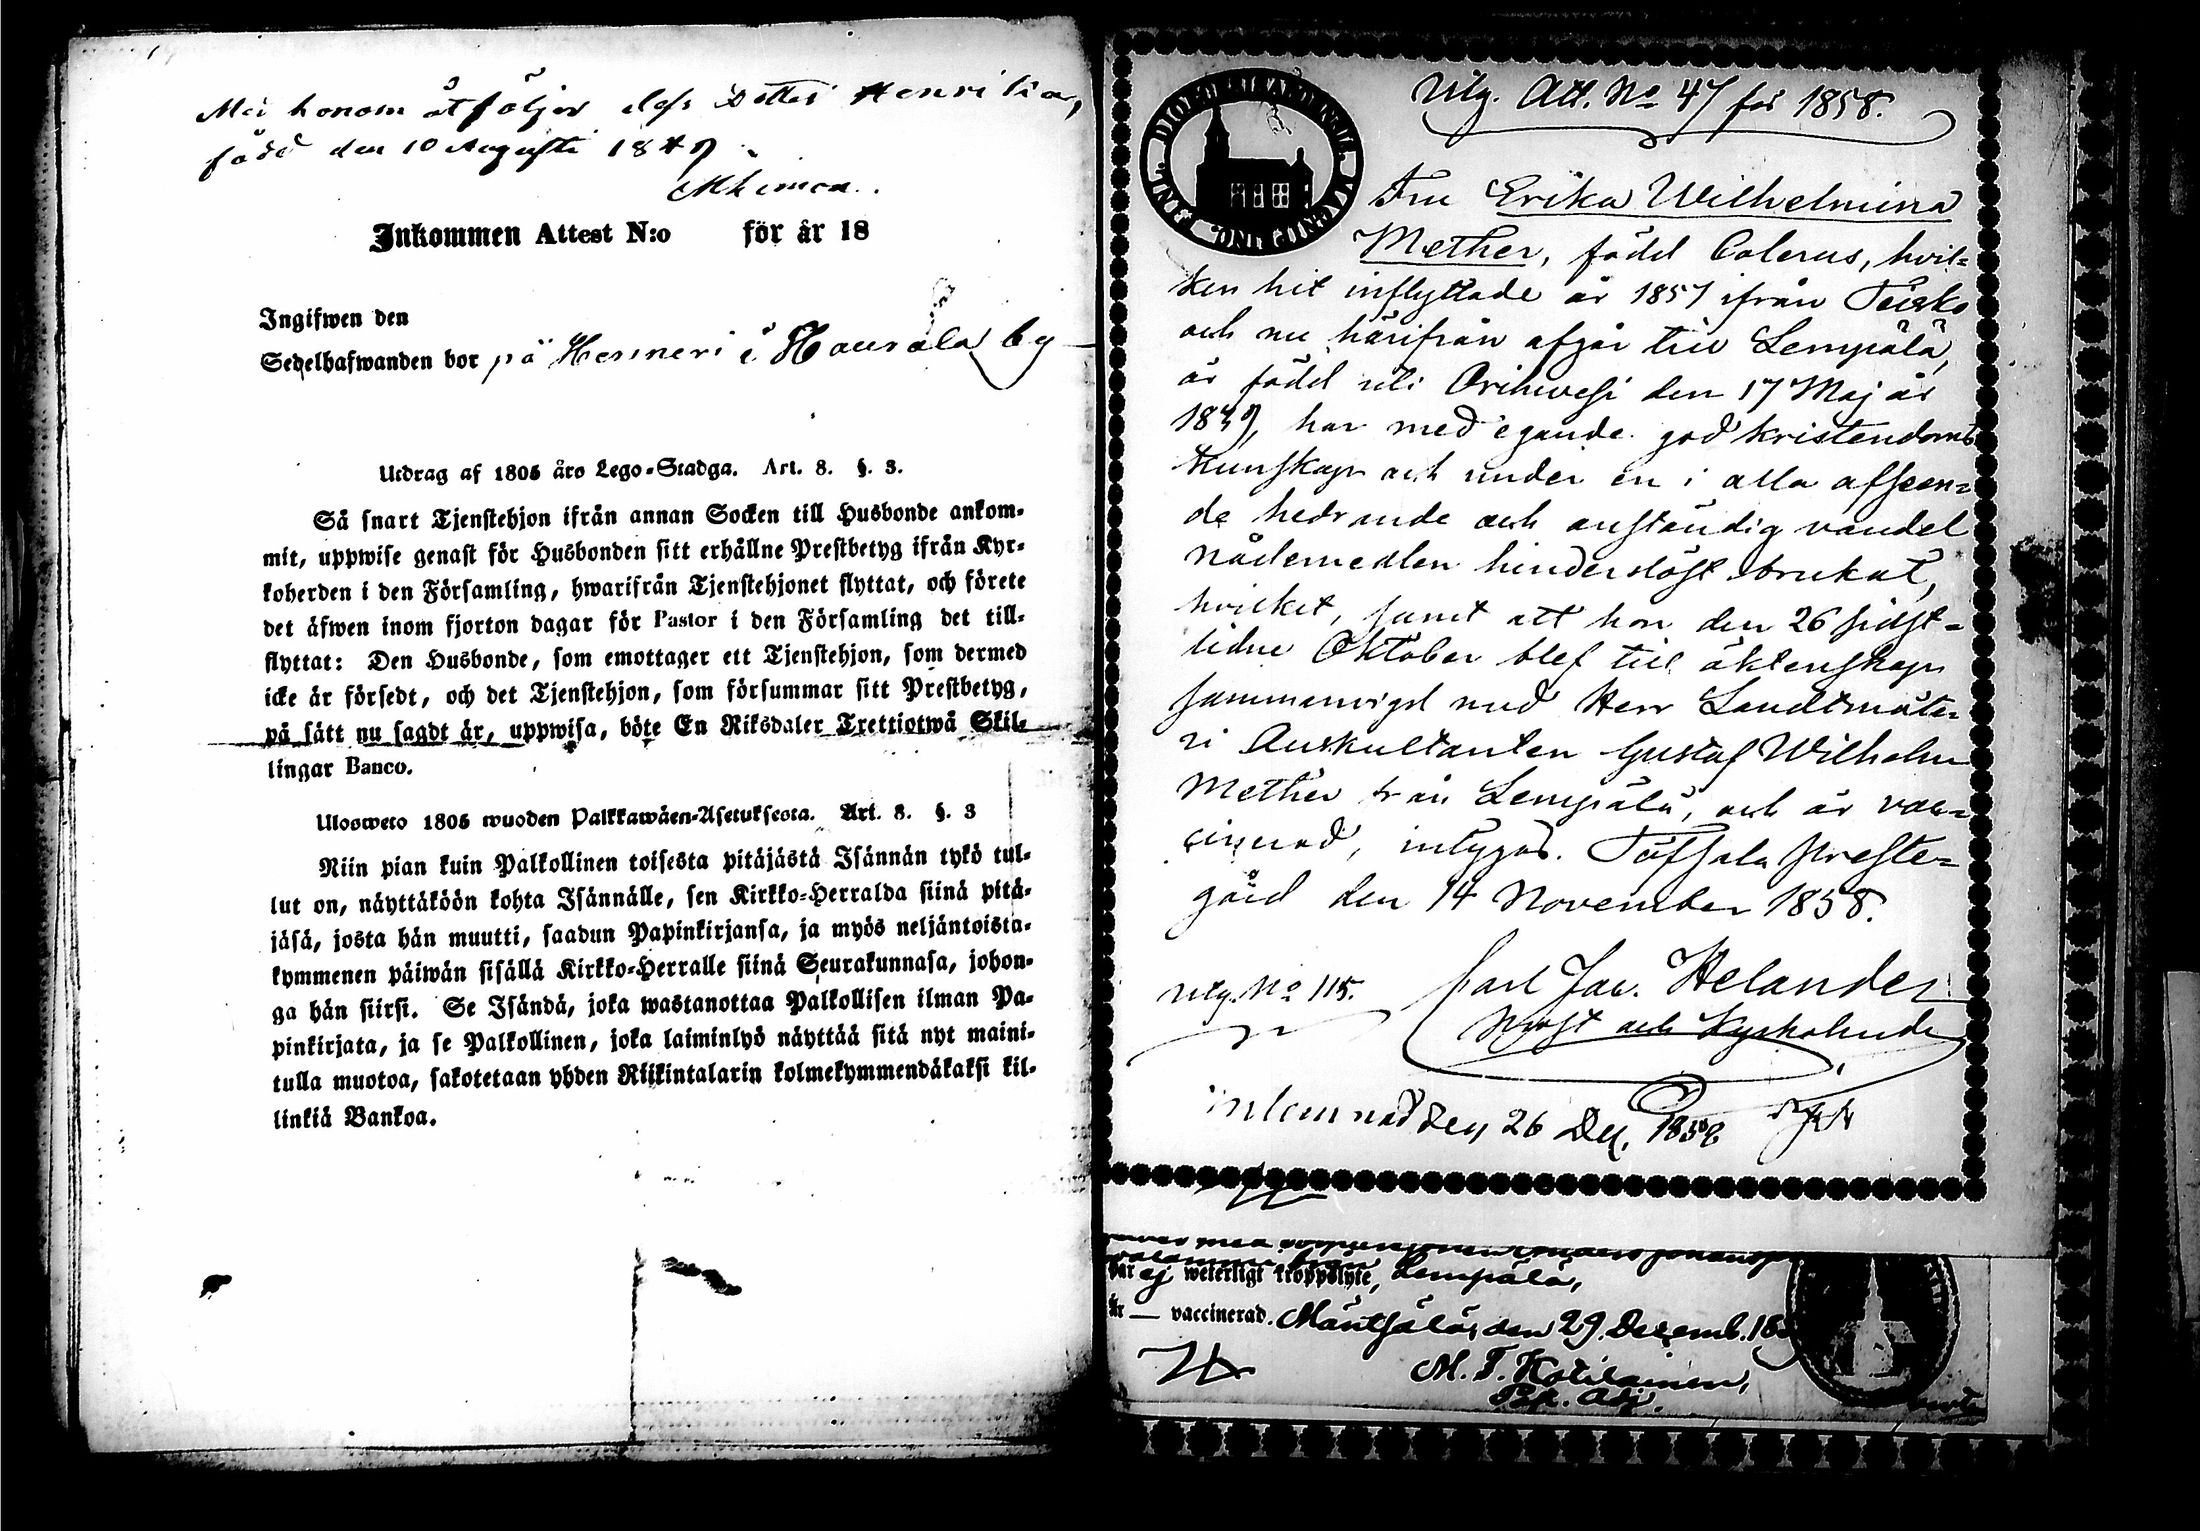 Med honom åtföljer dess Dotter Henrika,
född den 10 Augusti 1849
Inkommen Attest N:o för år 18
Ingifwen den
Sedelhafwanden bor på Henneri i Haurala by
Utdrag af 1805 års Lego-Stadga. Art. 8. §. 3.
Så snart Tjenstehjon ifrån annan Socken till Husbonde ankom-
mit, uppwise genast för Husbonden sitt erhållne Prestbetyg ifrån Kyr-
koherden i den Församling, hwarifrån Tjenstehjonet flyttat, och förete
det äfwen inom fjorton dagar för Pastor i den Församling det till-
flyttat: Den Husbonde, som emottager ett Tjenstehjon, som dermed
icke är försedt, och det Tjenstehjon, som försummar sitt Prestbetyg,
på sätt nu sagdt är, uppwisa, böte En Riksdaler Trettiotwå Skil-
lingar Banco.
Ulosweto 1805 wuoden Palkkawäen-Asetuksesta. Art. 8. §. 3
Niin pian kuin Palkollinen toisesta pitäjästä Isännän tykö tul-
lut on, näyttäköön kohta Isännälle, sen Kirkko-Herralda siinä pitä-
jäsä, josta hän muutti, saadun Papinkirjansa, ja myös neljäntoista-
kymmenen päiwän sisällä Kirkko-Herralle siinä Seurakunnasa, johon-
ga hän siirsi. Se Isändä, joka wastanottaa Palkollisen ilman Pa-
pinkirjata, ja se Palkollinen, joka laiminlyö näyttää sitä nyt maini-
tulla muotoa, sakotetaan yhden Riikintalarin kolmekymmendäkaksi kil-
linkiä Bankoa.
Utg. Att. No 47 för 1858.
Fru Erika Wilhelmina
Mether, född Colerus, hvil=
ken hit inflyttade år 1857 ifrån Teisko
och nu härifrån afgår till Lempälä,
är född uti Orihvesi den 17 Maj år
har med egande god kristendoms
kunskap och under en i alla afseen=
de hedrande och anständig vandel
nådemedlen hinderslöst brukat,
hvilket, samt att hon den 26 sidst=
lidne Oktober blef till äktenskap
sammanvigd med Herr Landtmäte=
ri Auskultanten Gustaf Wilhelm
Mether från Lempälä, och är vac=
cinerad, intygas. Töfsala Preste=
gård den 14 November 1858.
Carl Jac. Helander
Utg. No 115.
Prost och Kyrkoherde
inlemnad den 26 Dec. 1858
har ej weterligt kroppslyte, Lempälä,
Är — vaccinerad. Mäntsälä, den 29 Decemb. 18
M. T. Kotilainen,
Past. Adj.